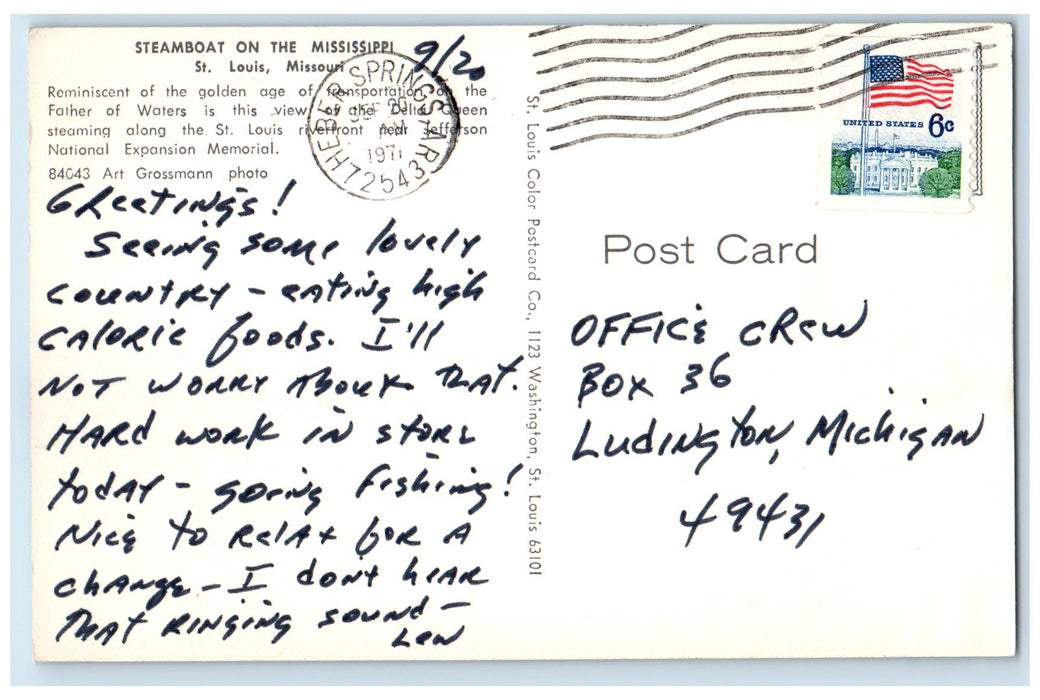 STEAMBOAT ON THE MISSISSIPPI
St. Louis, Missouri
9/20
Reminiscent of the golden age of transportation on the
Father of Waters is this view of the Delta Queen
steaming along the St. Louis riverfront near Jefferson
National Expansion Memorial.
84043 Art Grossmann photo
HEBER SPRINGS, AR
SEP 20
1971
72543
Greetings!
Seeing some lovely
country - eating high
calorie foods. I'll
not worry about that.
Hard work in store
today - going fishing!
Nice to relax for a
change - I dont hear
that ringing sound -
Len
St. Louis Color Postcard Co., 1123 Washington, St. Louis 63101
UNITED STATES 6c
Post Card
OFFICE CREW
BOX 36
Ludington, Michigan
49431